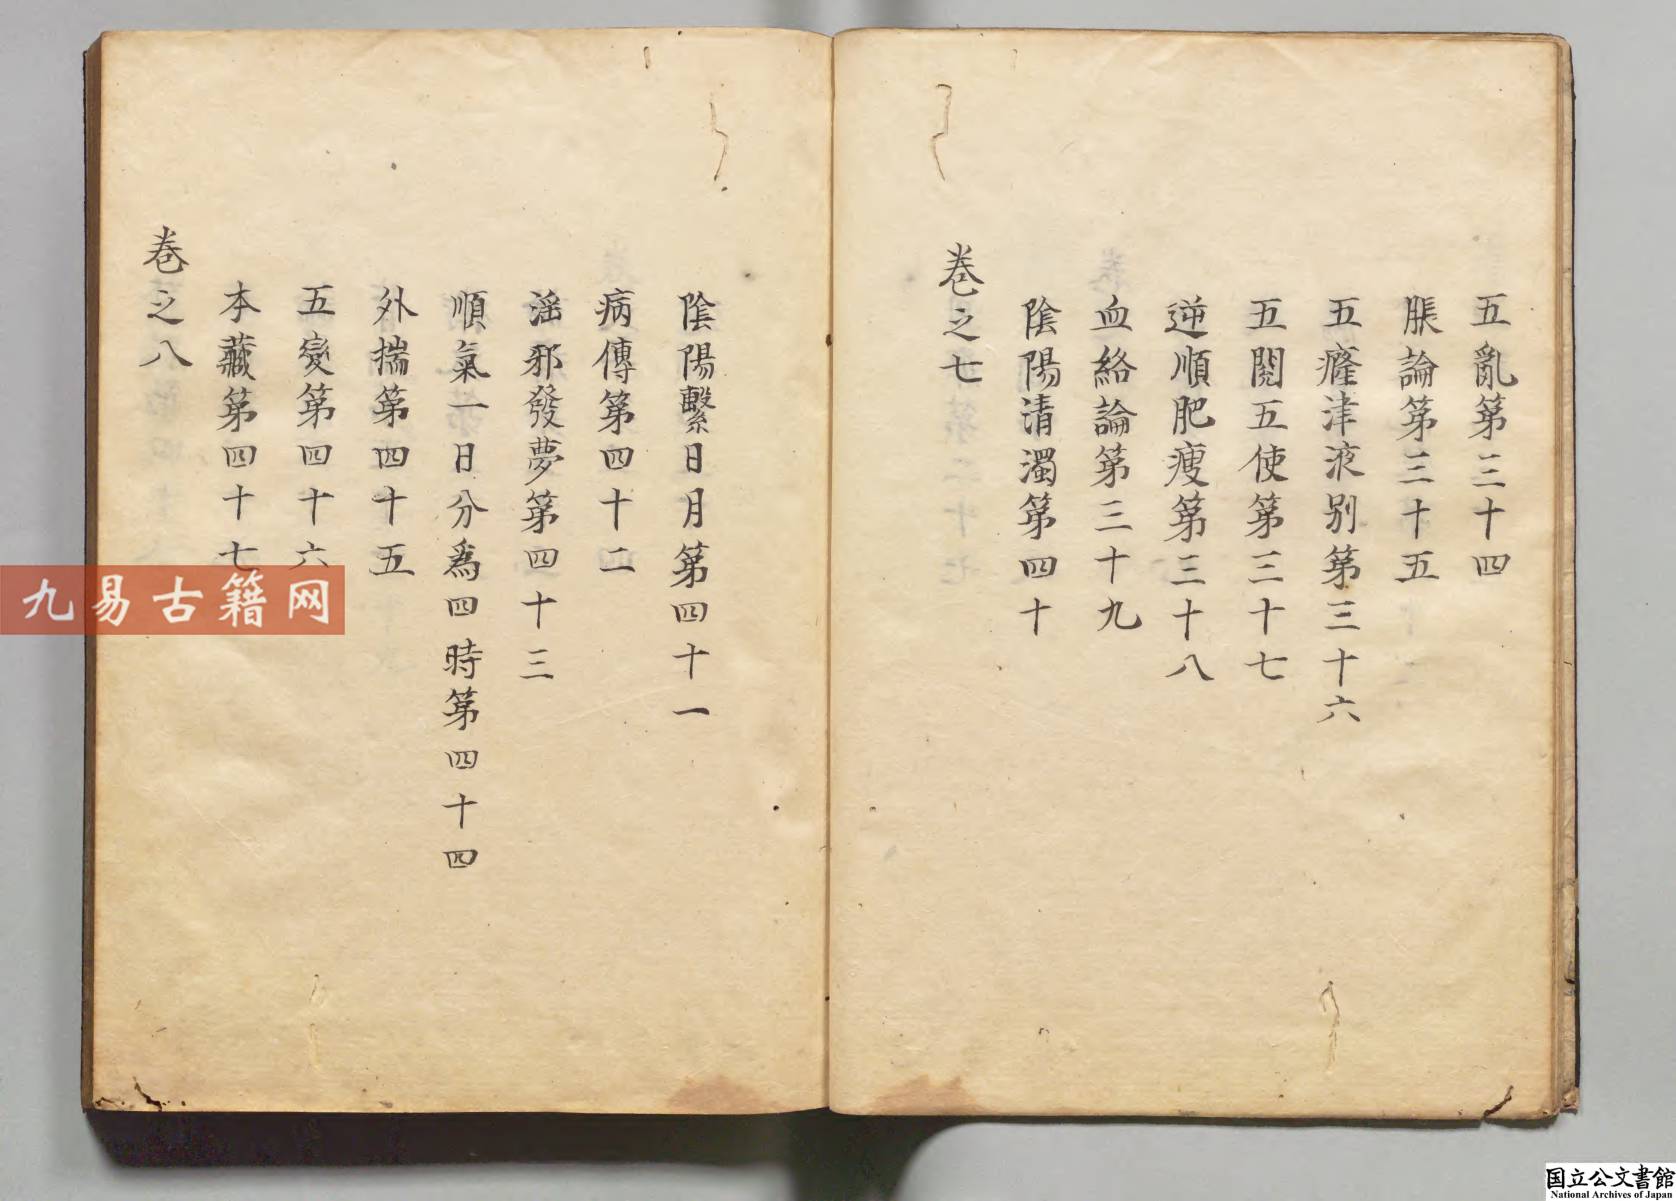 五亂第三十四
脹論第三十五
五癃津液别第三十六
五閱五使第三十七
逆順肥瘦第三十八
血絡論第三十九
陰陽清濁第四十
卷之七
陰陽繫日月第四十一
病傳第四十二
滛邪發夢第四十三
順氣一日分爲四時第四十四
外揣第四十五
五變第四十六
本藏第四十七
卷之八
九易古籍网
国立公文書館
National Archives of Japan